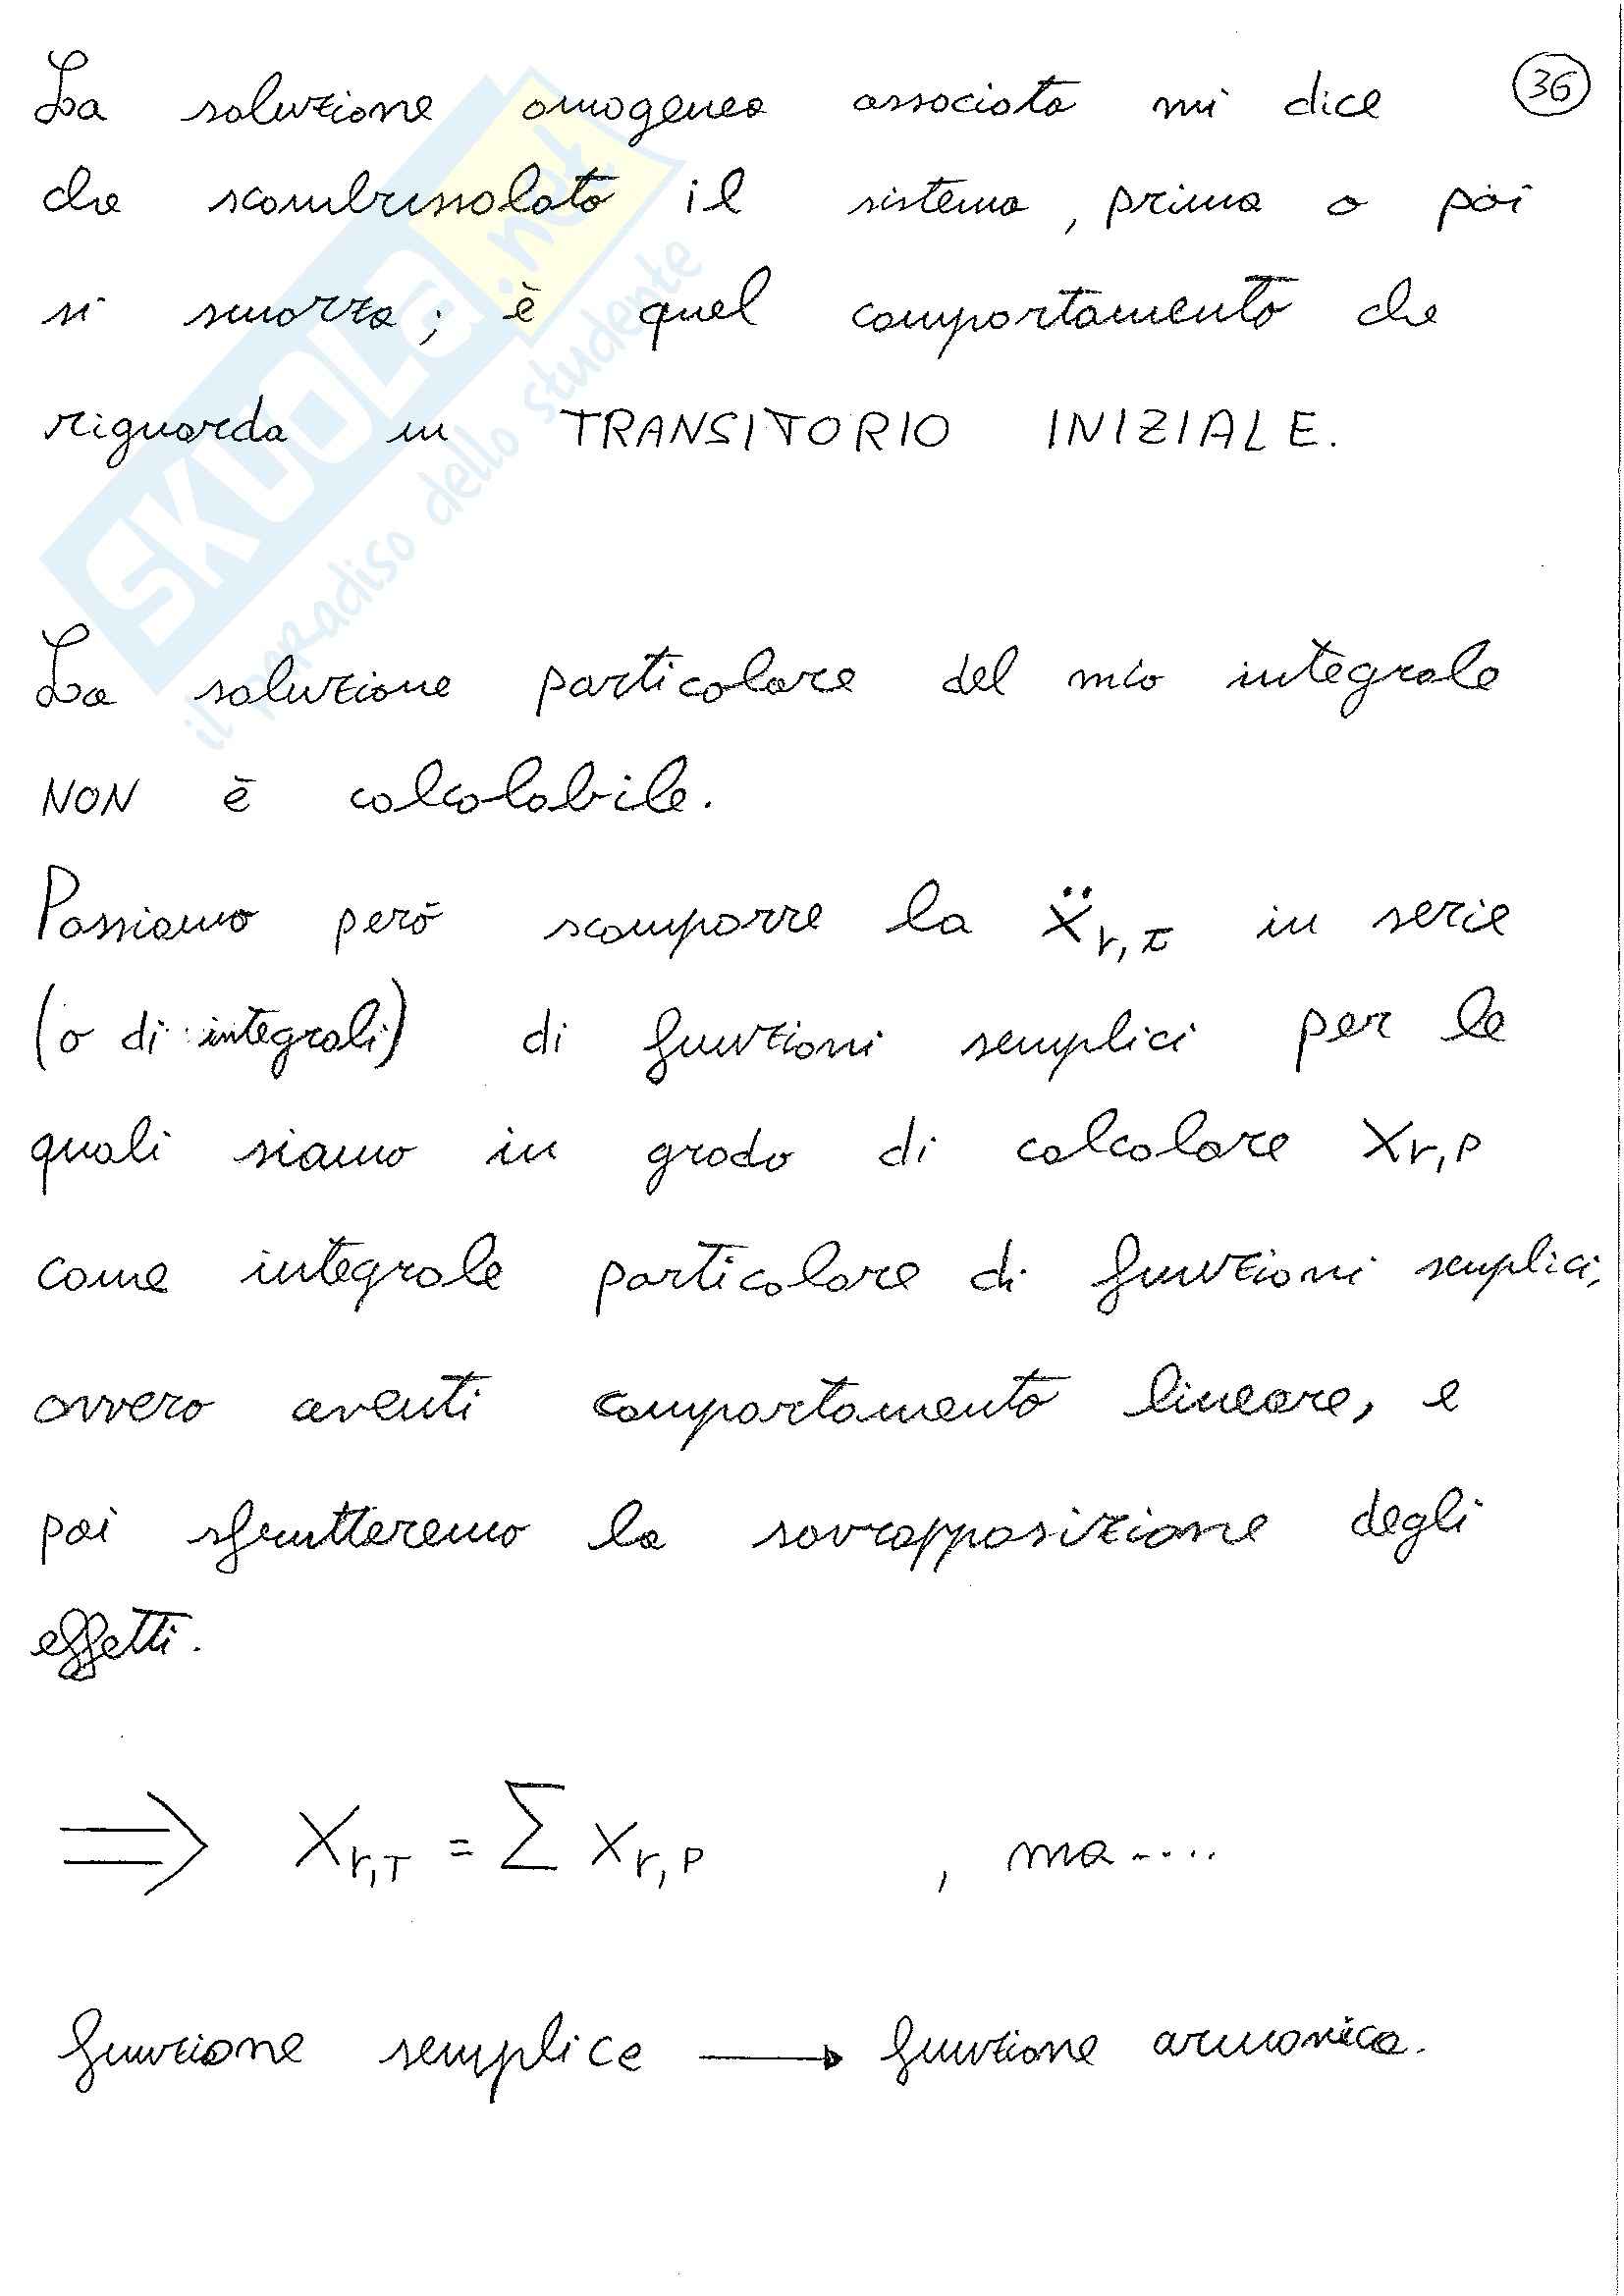 La soluzione omogenea associata mi dice 36
che scombussolato il sistema, prima o poi
si smorza; è quel comportamento che
riguarda un TRANSITORIO INIZIALE.
La soluzione particolare del mio integrale
NON è calcolabile.
Possiamo però scomporre la Ẍr,τ in serie
(o di integrali) di funzioni semplici per le
quali siamo in grado di calcolare Xr,P
come integrale particolare di funzioni semplici,
ovvero aventi comportamento lineare, e
poi sfrutteremo la sovrapposizione degli
effetti.
⟹ Xr,T = Σ Xr,P , ma....
funzione semplice ⟶ funzione armonica.
SKUOLA.net
il paradiso dello studente